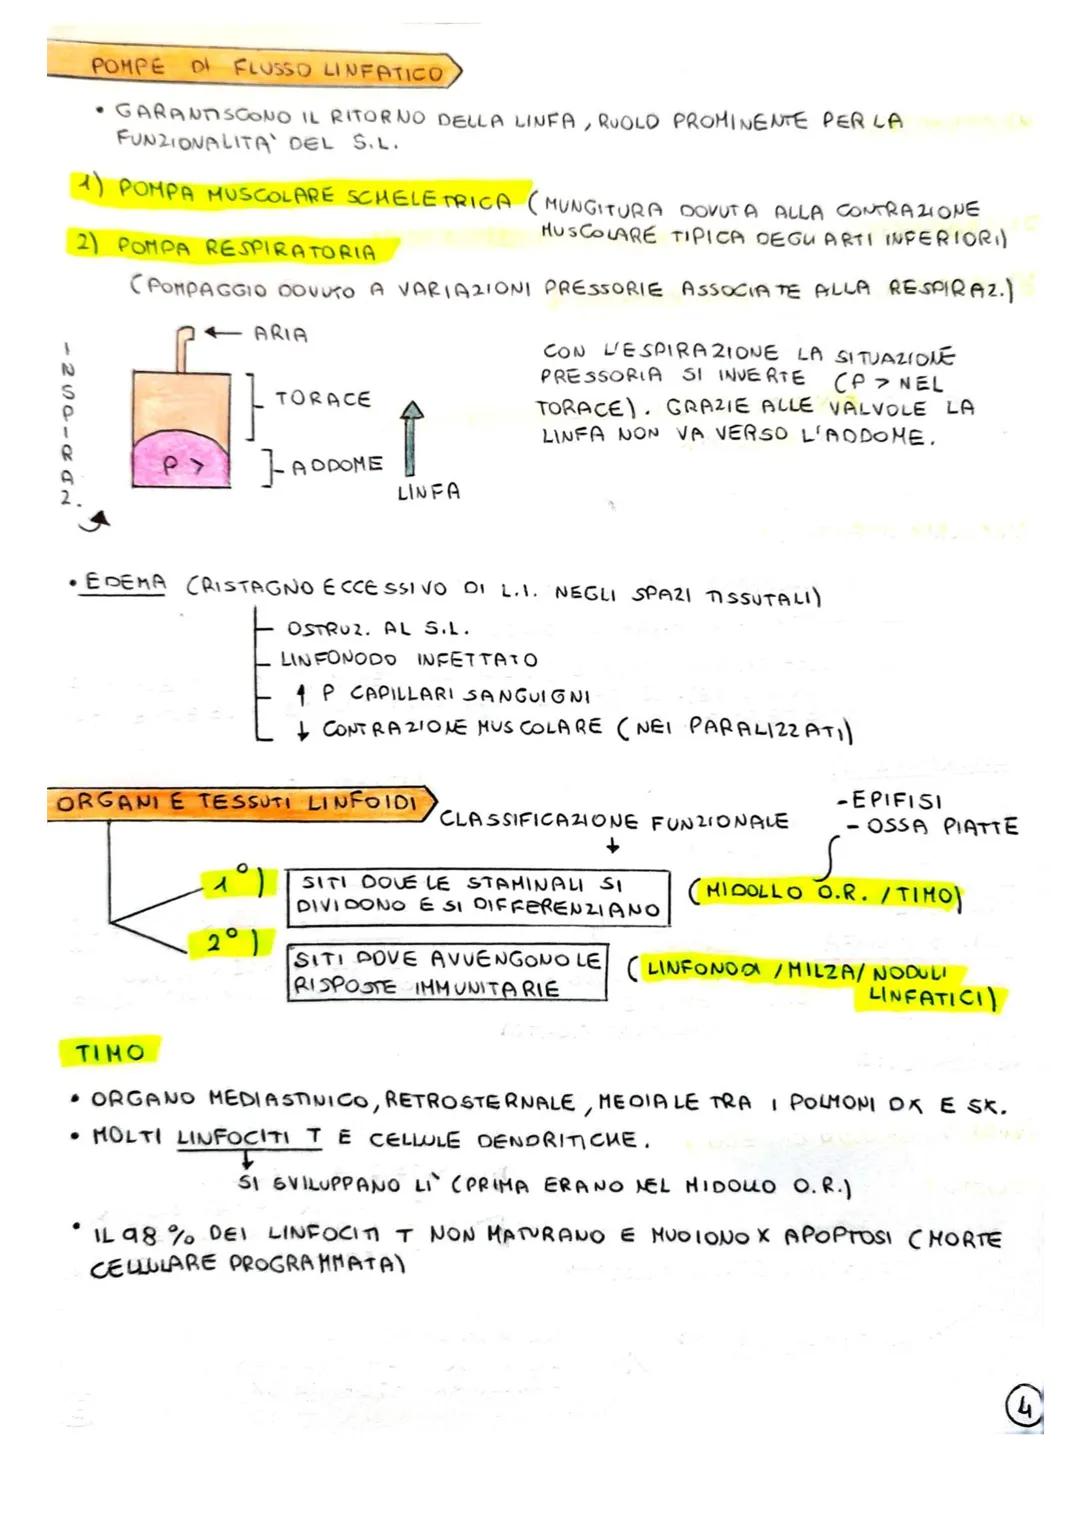 POMPE DI FLUSSO LINFATICO
• GARANTISCONO IL RITORNO DELLA LINFA, RUOLO PROMINENTE PER LA
FUNZIONALITA' DEL S.L.
1) POMPA MUSCOLARE SCHELETRICA (MUNGITURA DOVUTA ALLA CONTRAZIONE
MUSCOLARE TIPICA DEGLI ARTI INFERIORI)
2) POMPA RESPIRATORIA
(POMPAGGIO DOVUTO A VARIAZIONI PRESSORIE ASSOCIATE ALLA RESPIRAZ.)
INSPIRAZ.
← ARIA
TORACE
P >
ADDOME
LINFA
CON L'ESPIRAZIONE LA SITUAZIONE
PRESSORIA SI INVERTE (P > NEL
TORACE). GRAZIE ALLE VALVOLE LA
LINFA NON VA VERSO L'ADDOME.
• EDEMA (RISTAGNO ECCESSIVO DI L.I. NEGLI SPAZI TISSUTALI)
OSTRUZ. AL S.L.
LINFONODO INFETTATO
↑ P CAPILLARI SANGUIGNI
↓ CONTRAZIONE MUSCOLARE (NEI PARALIZZATI)
ORGANI E TESSUTI LINFOIDI
CLASSIFICAZIONE FUNZIONALE
↓
- EPIFISI
- OSSA PIATTE
1°) SITI DOVE LE STAMINALI SI
DIVIDONO E SI DIFFERENZIANO
(MIDOLLO O.R. / TIMO)
2°) SITI DOVE AVVENGONO LE
RISPOSTE IMMUNITARIE
(LINFONODI / MILZA / NODULI
LINFATICI)
TIMO
• ORGANO MEDIASTINICO, RETROSTERNALE, MEDIALE TRA I POLMONI DX E SX.
• MOLTI LINFOCITI T E CELLULE DENDRITICHE.
↓
SI SVILUPPANO LI' (PRIMA ERANO NEL MIDOLLO O.R.)
• IL 98 % DEI LINFOCITI T NON MATURANO E MUOIONO X APOPTOSI (MORTE
CELLULARE PROGRAMMATA)
4